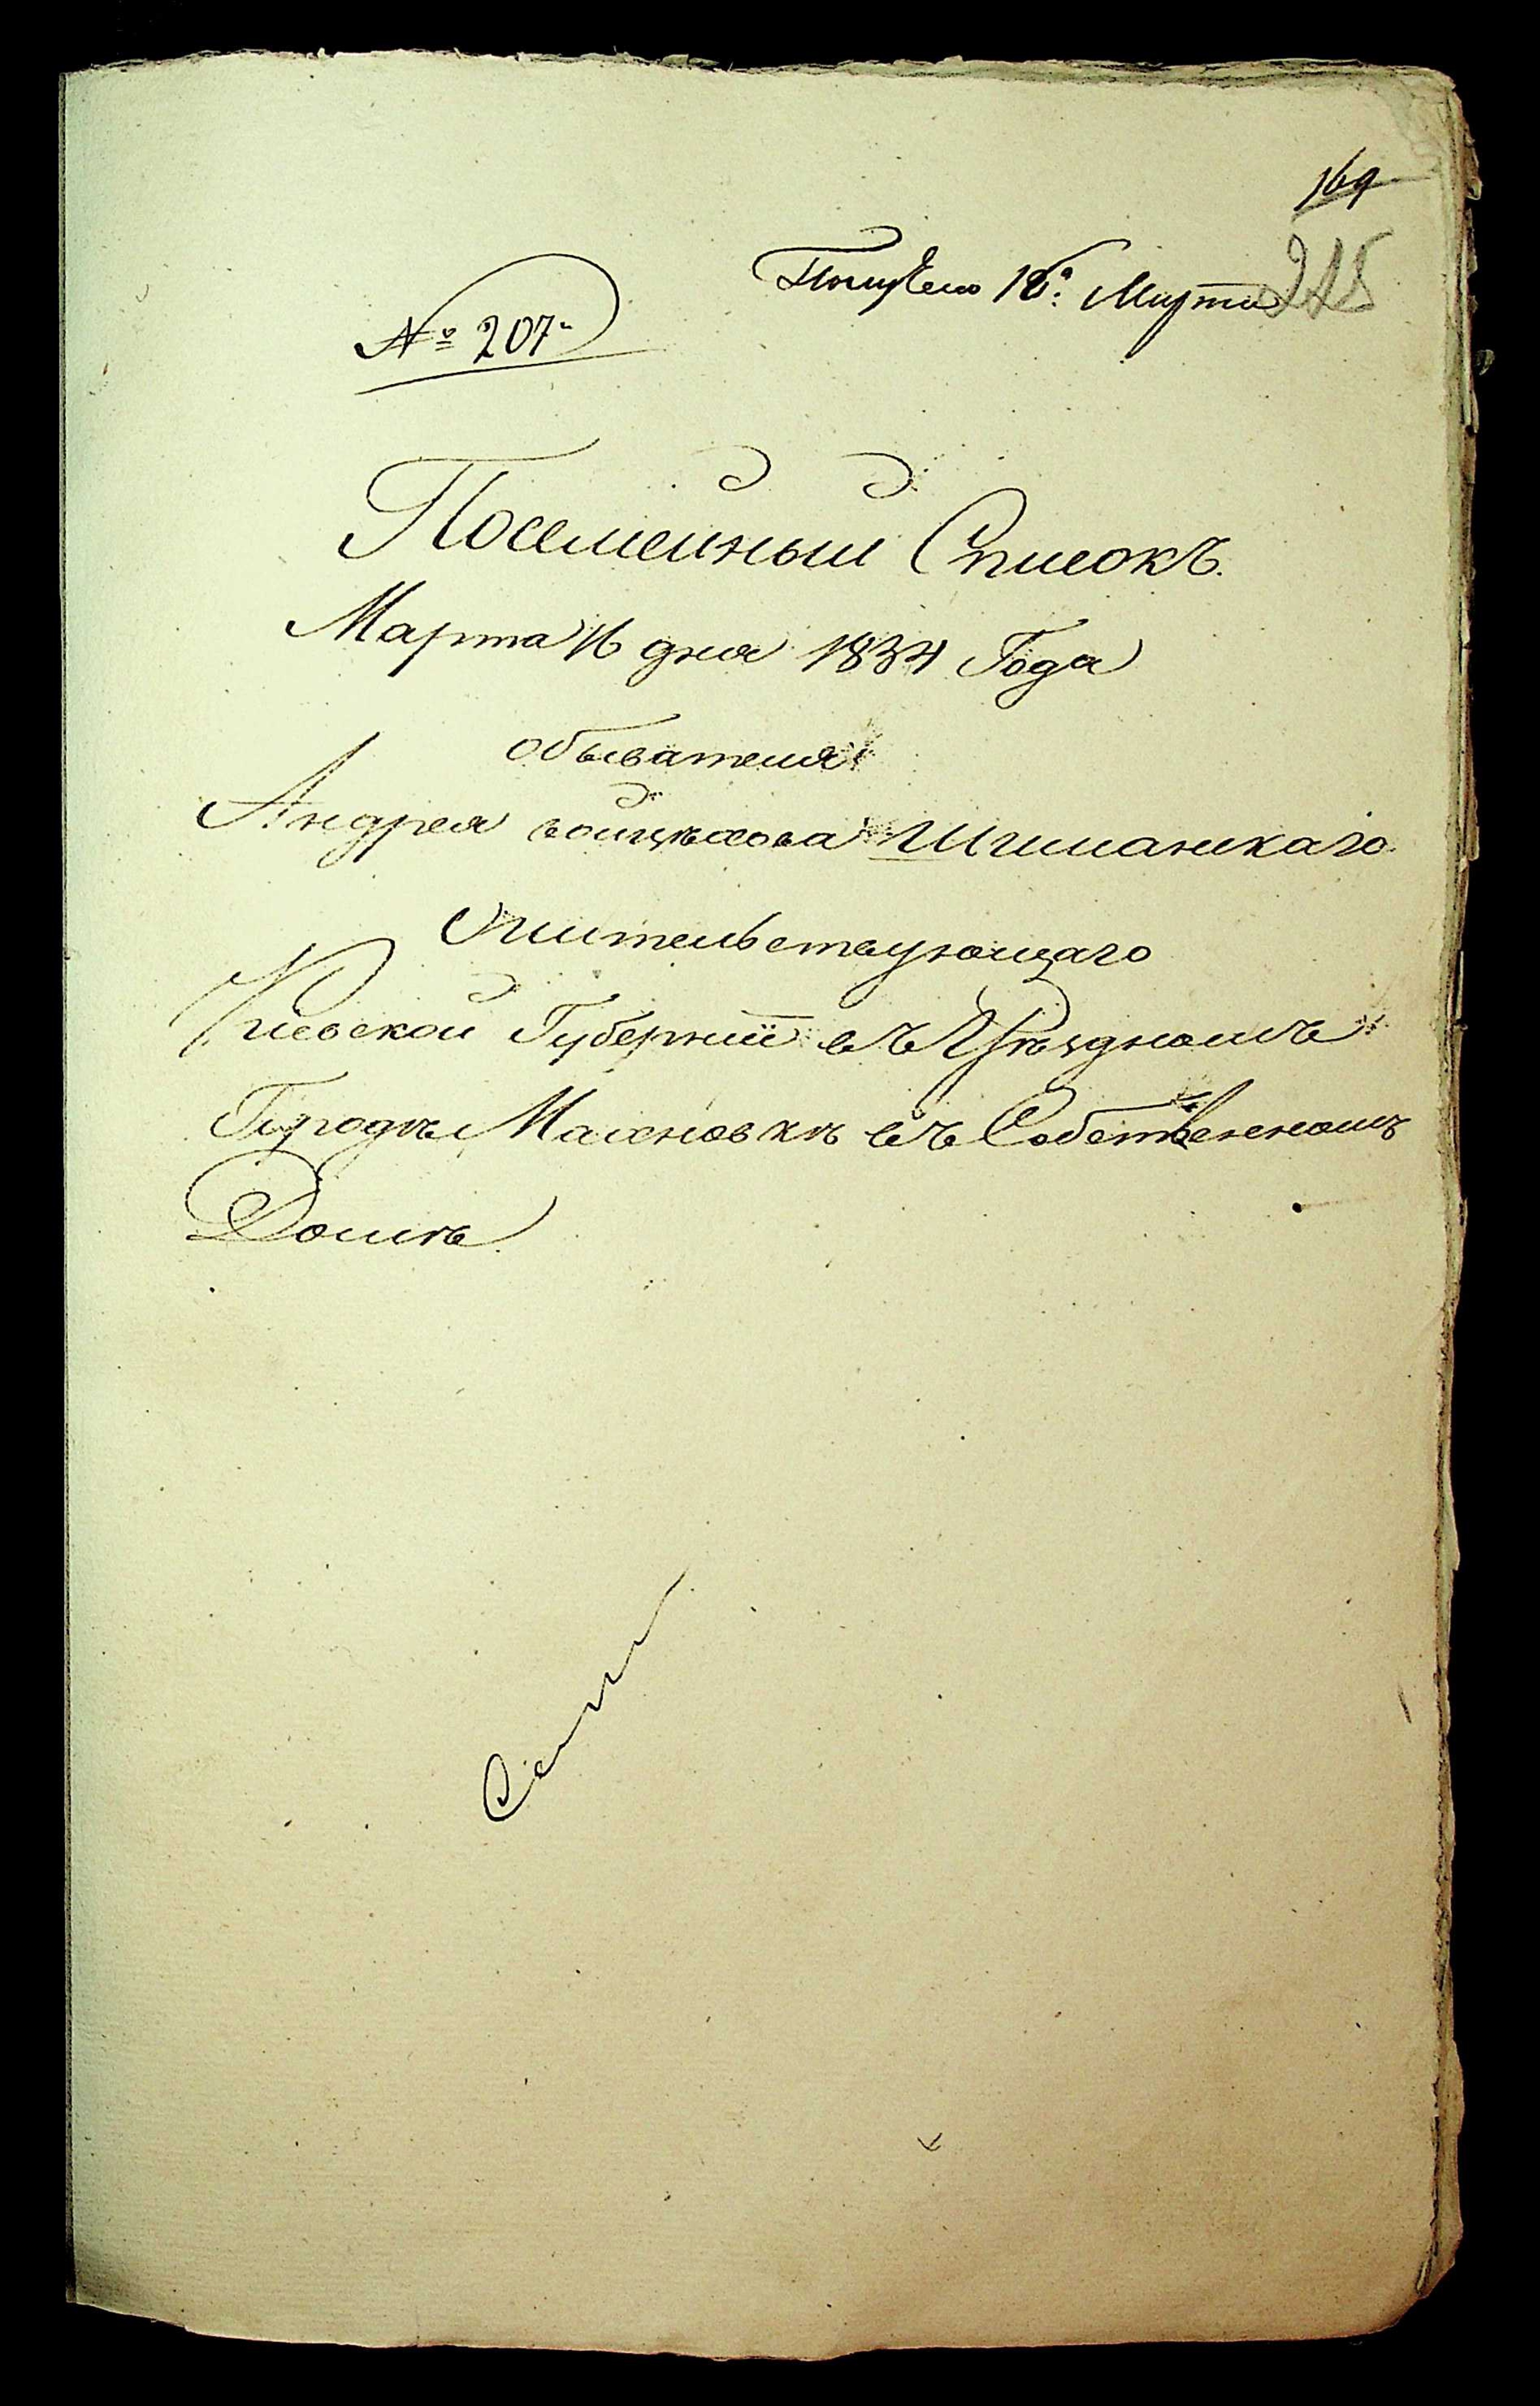 169
215
Получено 16го Марта
№ 207й
Посемейный Списокъ.
Марта 16 дня 1834 Года
обывателя
Андрея войцѣхова
Жительствующаго
Кіевской Губерніи въ Уѣздномъ
Городѣ Махновкѣ въ Собственномъ
Домѣ